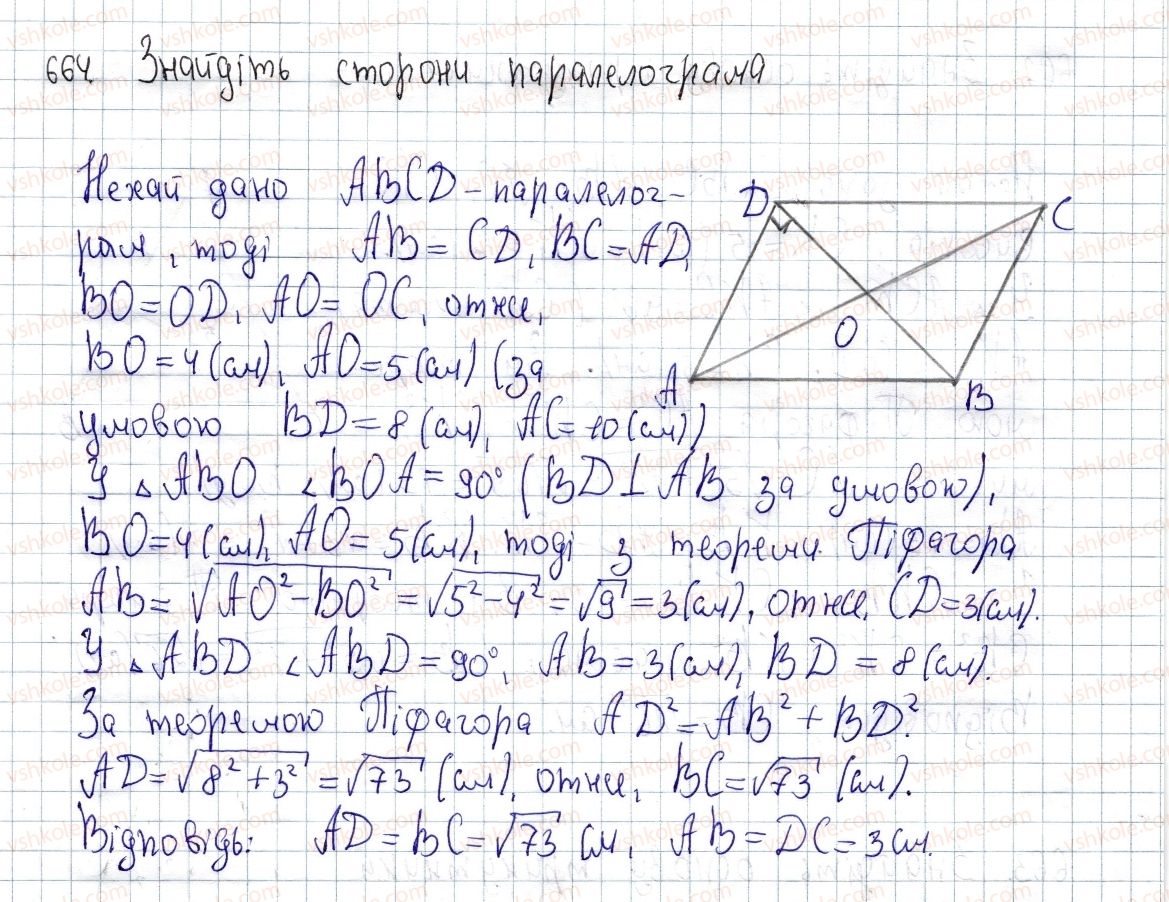 664. Знайдіть сторони паралелограма
Нехай дано ABCD - паралелог-
рам, тоді AB = CD, BC = AD,
BO = OD, AO = OC, отже,
BO = 4 (см), AO = 5 (см) (за
умовою BD = 8 (см), AC = 10 (см))
У △ ABO ∠ BOA = 90° (BD ⊥ AB за умовою),
BO = 4 (см), AO = 5 (см), тоді з теореми Піфагора
AB = √(AO² - BO²) = √(5² - 4²) = √9 = 3 (см), отже, CD = 3 (см).
У △ ABD ∠ ABD = 90°, AB = 3 (см), BD = 8 (см).
За теоремою Піфагора AD² = AB² + BD².
AD = √(8² + 3²) = √73 (см), отже, BC = √73 (см).
Відповідь: AD = BC = √73 см, AB = DC = 3 см.
D
C
O
A
B
vshkole.com